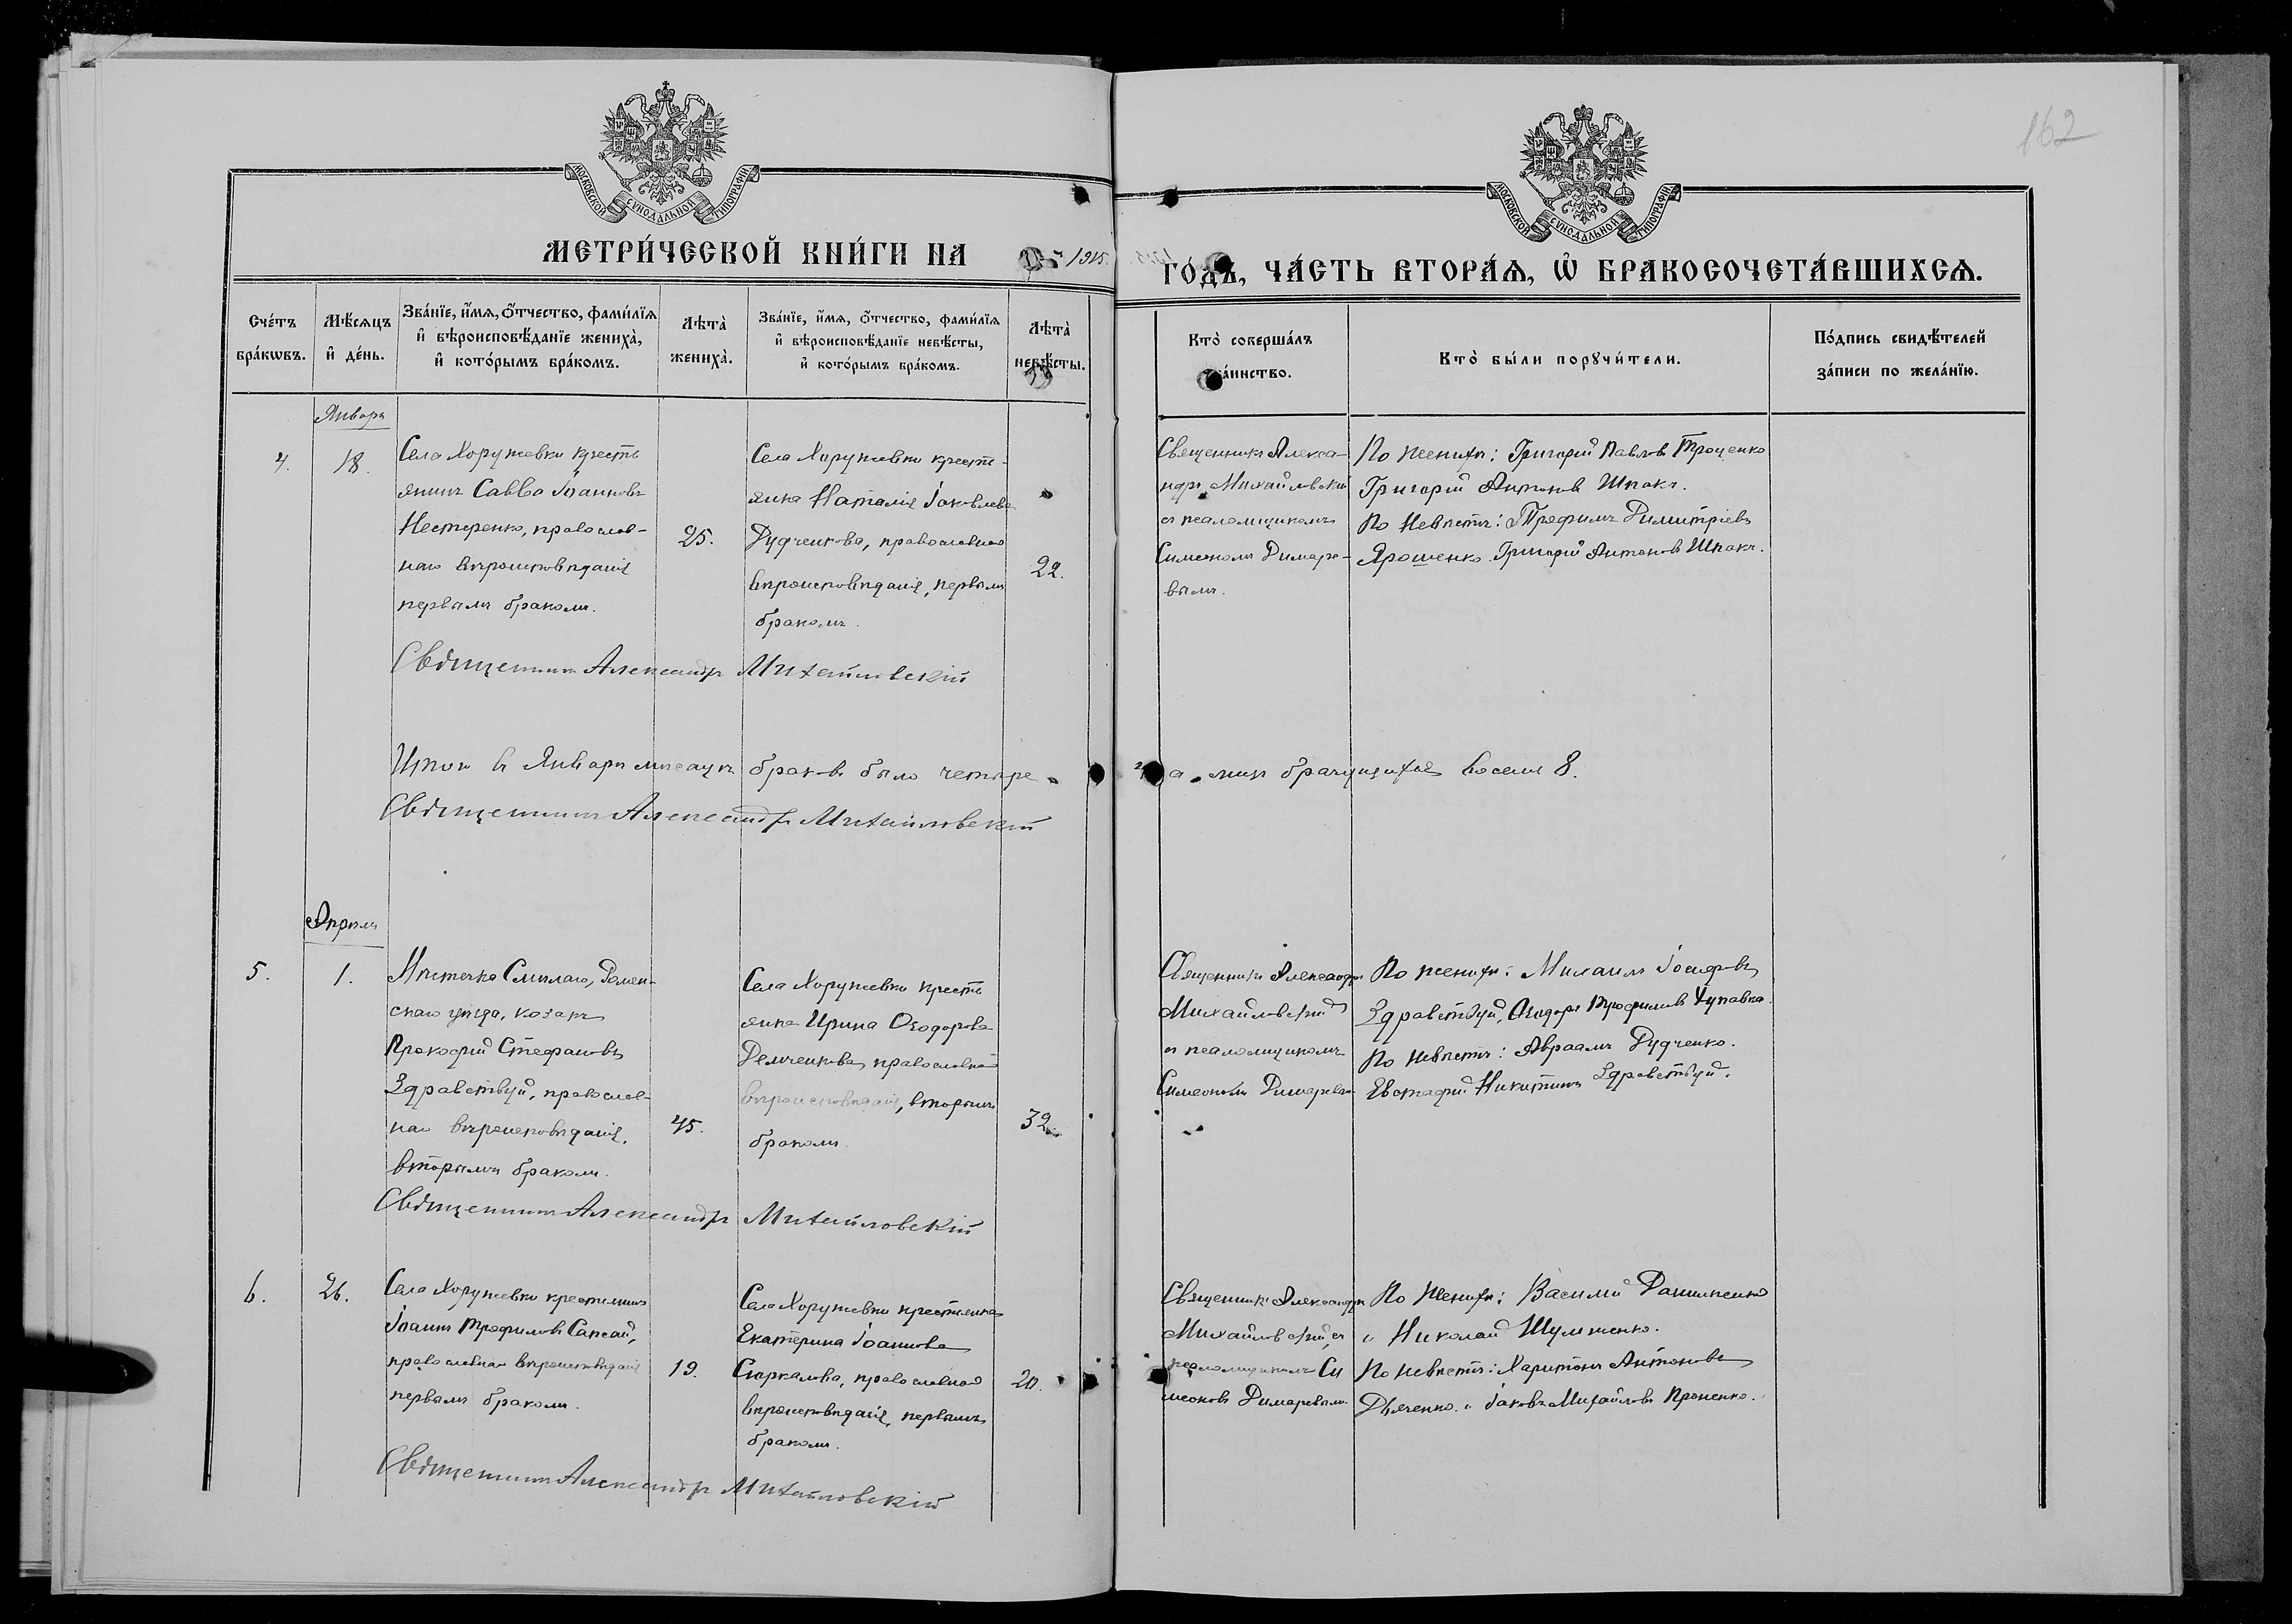 162
МОСКОВСКОЙ СѴНОДАЛЬНОЙ ТИПОГРАФІИ
МОСКОВСКОЙ СѴНОДАЛЬНОЙ ТИПОГРАФІИ
МЕТРИ́ЧЕСКОЙ КНИ́ГИ НА 1915.
ГО́ДЪ, ЧА́СТЬ ВТОРА́Ѧ, Ѡ҆ БРАКОСОЧЕТА́ВШИХСѦ.
Сче́тъ бра́кѡвъ.
Мѣ́сѧцъ и҆ де́нь.
Зва́нїе, и҆́мѧ, ѻ҆́тчество, фами́лїѧ и҆ вѣроисповѣ́данїе жениха̀, и҆ кото́рымъ бра́комъ.
Лѣта̀ жениха̀.
Зва́нїе, и҆́мѧ, ѻ҆́тчество, фами́лїѧ и҆ вѣроисповѣ́данїе невѣ́сты, и҆ кото́рымъ бра́комъ.
Лѣта̀ невѣ́сты.
Кто̀ соверша́лъ та́инство.
Кто̀ бы́ли порꙋчи́тели.
По́дпись свидѣ́телей за́писи по жела́нїю.
Январь
4.
18.
Села Хоружевки кресть
янинъ Савва Іоанновъ
Нестеренко, православ-
наго вѣроисповѣданія
первымъ бракомъ.
25.
Села Хоружевки кресть-
янка Наталія Іаковлева
Дудченкова, православнаго
вѣроисповѣданія, первымъ
бракомъ.
22.
Священникъ Алекса-
ндръ Михайловскій
съ псаломщикомъ
Симеономъ Димаре-
вымъ.
По женихѣ: Григорій Павловъ Троценко
Григорій Антоновъ Шпакъ.
По невѣстѣ: Трофимъ Димитріевъ
Ярошенко Григорій Антоновъ Шпакъ.
Священникъ Александръ Михайловскій
Итого въ Январѣ мѣсяцѣ браковъ было четыре
4 а лицъ брачущихся восемь 8.
Священникъ Александръ Михайловскій
Апрѣль
5.
1.
Мѣстечка Смѣлаго, Ромен-
скаго уѣзда, козакъ
Прокофій Стефановъ
Здравствуй, православ-
наго вѣроисповѣданія,
вторымъ бракомъ.
45.
Села Хоружевки кресть
янка Ирина Ѳеодорова
Демченкова, православнаго
вѣроисповѣданія, вторымъ
бракомъ
32.
Священникъ Александръ
Михайловскій
съ псаломщикомъ
Симеономъ Димаревымъ
По женихѣ: Михаилъ Іосифовъ
Здравствуй, Ѳеодоръ Трофимовъ
По невѣстѣ: Авраамъ Дудченко.
Евстафій Никитинъ Здравствуй.
Священникъ Александръ Михайловскій
6.
26.
Села Хоружевки крестьянинъ
Іоаннъ Трофимовъ Сапсай,
православнаго вѣроисповѣданія
первымъ бракомъ.
19.
Села Хоружевки крестьянка
Екатерина Іоаннова
православнаго
вѣроисповѣданія, первымъ
бракомъ.
20.
Священникъ Александръ
Михайловскій, съ
псаломщикомъ Си
меономъ Димаревымъ
По женихѣ: Василій
и Николай
По невѣстѣ: Харитонъ Антоновъ
Дьяченко и Іаковъ Михайловъ Проненко.
Священникъ Александръ Михайловскій